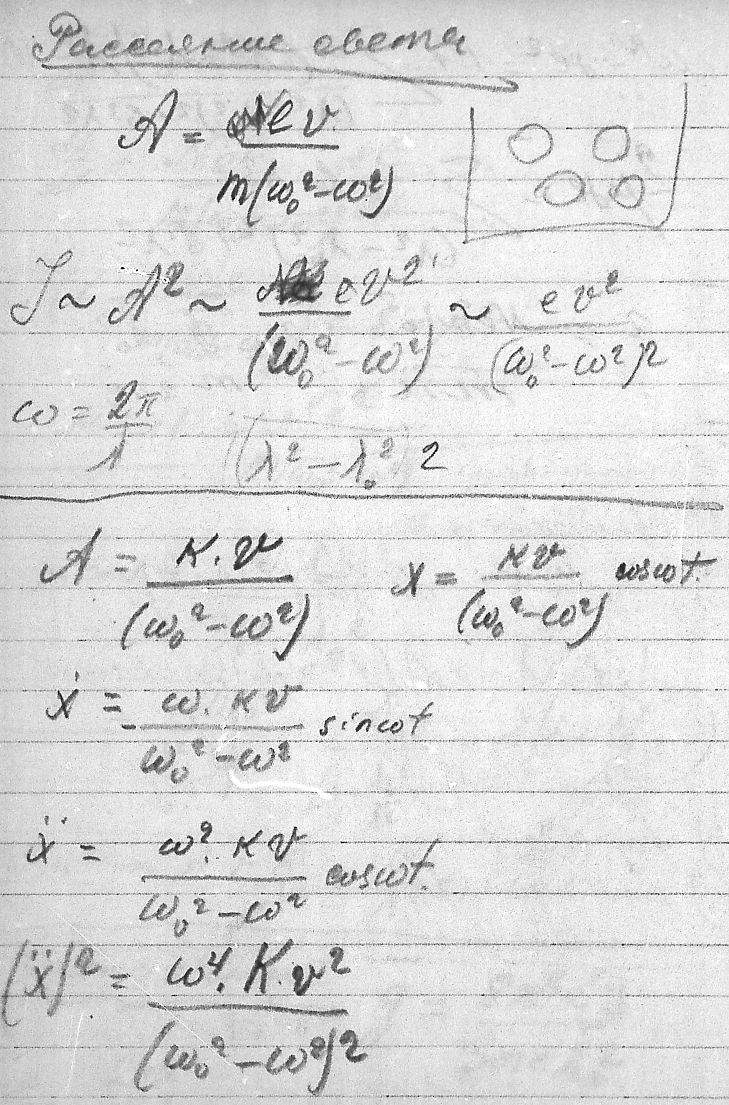 Рассеяние света
A = ev / m(ω₀²−ω²)
J ~ A² ~ ev² / (ω₀²−ω²) ~ ev² / (ω₀²−ω²)2
ω = 2π / λ (λ²−λ₀²)2
A = к.v / (ω₀²−ω²) x = кv / (ω₀²−ω²) cosωt.
ẋ = − ω.кv / ω₀²−ω² sinωt
ẍ = ω².кv / ω₀²−ω² cosωt.
(ẍ)² = ω⁴.К.v² / (ω₀²−ω²)2